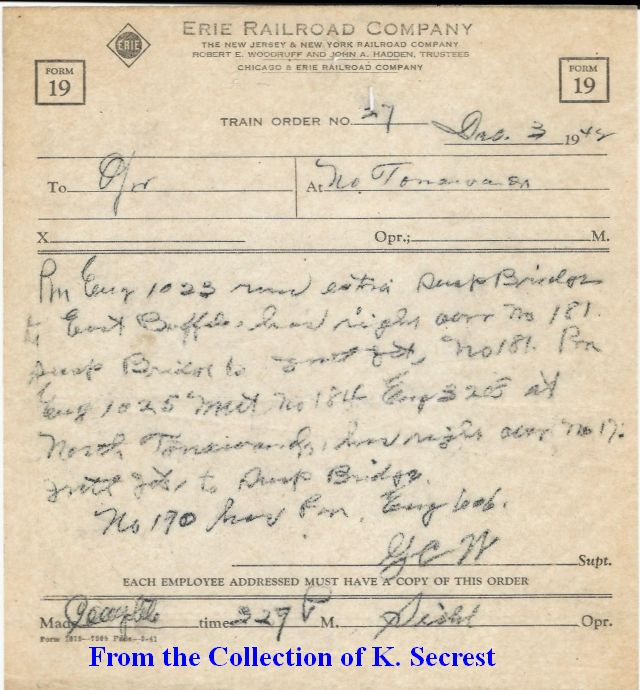 ERIE
ERIE RAILROAD COMPANY
THE NEW JERSEY & NEW YORK RAILROAD COMPANY
ROBERT E. WOODRUFF AND JOHN A. HADDEN, TRUSTEES
CHICAGO & ERIE RAILROAD COMPANY
FORM 19
FORM 19
TRAIN ORDER NO. 27
Dec. 3 1942
To At No Tonawanda
X Opr.; M.
Eng 1023 run extra Susp Bridge
to East Buffalo, has right over No 181.
Susp Bridge to No 181.
Eng 1025 Meet No 184 Eng 325 at
North Tonawanda, has right over No 17
to Susp Bridge.
No 190 has Eng 606.
G C W Supt.
EACH EMPLOYEE ADDRESSED MUST HAVE A COPY OF THIS ORDER
Made time 327 P M. Opr.
From the Collection of K. Secrest